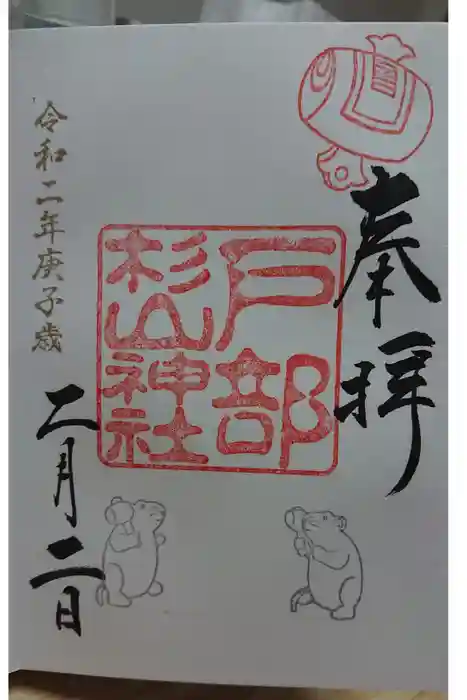 奉拝
戸部
杉山神社
令和二年庚子歳
二月二日